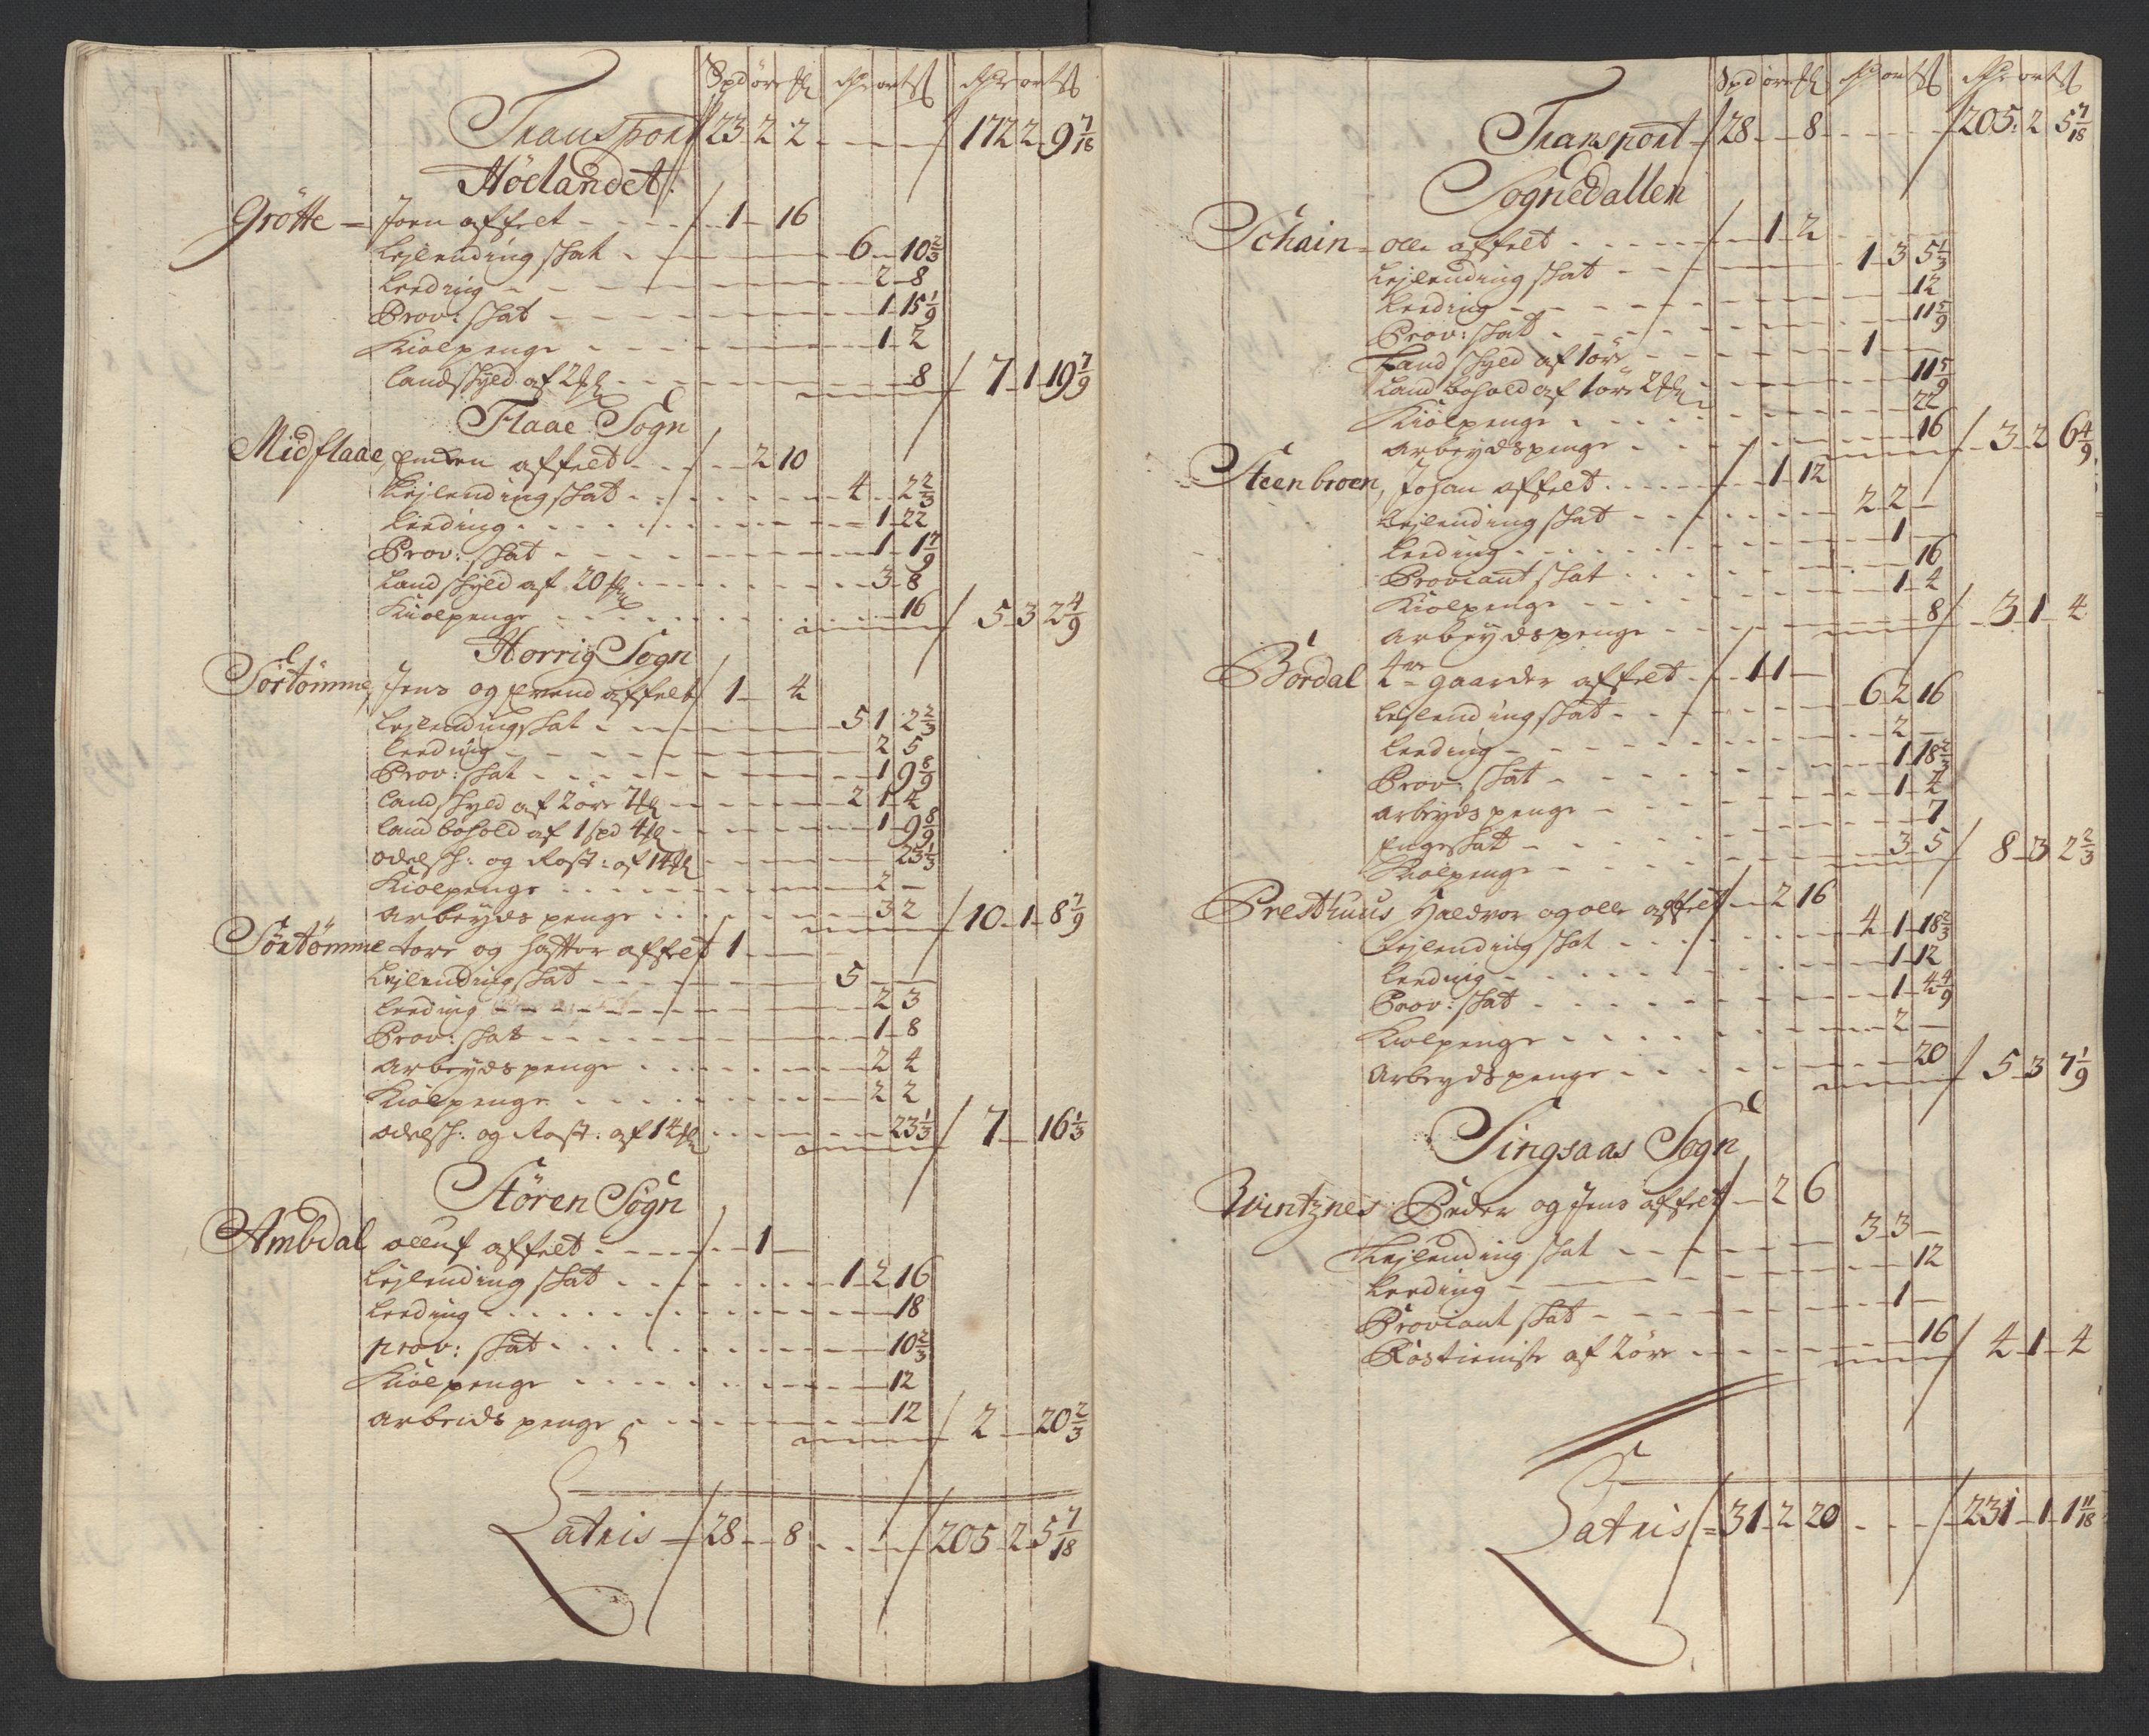 Spd øre ₰ Rdr ort ß Rdr ort ß
Transport 23 2 2 172 2 9 7/18
Höelandet
Grötte Joen affelt 1 16
Leylending skat 6 10 2/3
Leeding 2 8
Prov: skat 1 15 1/9
Kiølpenge 1 2
Landskyld af 2 ₰ 8 7 1 19 7/9
Flaae Sogn
Midflaae, affelt 2 10
Leylending skat 4 2 2/3
Leeding 1 22
Prov: skat 1 1 7/9
Landskyld af 20 ₰ 3 8
Kiølpenge 16 5 3 2 4/9
Horrig Sogn
Sörtömme, Jens og Evend affelt 1 4
Leylendingskat 5 1 2 2/3
Leeding 2 5
Prov: skat 1 9 8/9
Landskyld af 2 øre 7 ₰ 2 1 4
Landbohold af 1 spd 4 ₰ 1 9 8/9
Odelsk: og Rost: af 14 ₰ 23 1/3
Kiølpenge 2
Arbeyds penge 3 2 10 1 8 7/9
Sörtömme tore og hattor affelt 1
Leylendingskat 5
Leeding 2 3
Prov: skat 1 8
Arbeyds penge 2 4
Kiølpenge 2 2
Odelsk: og Rost: af 14 ₰ 23 1/3 7 16 1/3
Stören Sogn
Ambdal olluf affelt 1
Leylending skat 1 2 16
Leeding 18
prov: skat 10 2/3
Kiølpenge 12
Arbeids penge 12 2 20 2/3
Latris 28 8 205 2 5 7/18
Spd øre ₰ Rdr ort ß Rdr ort ß
Transport 28 8 205 2 5 7/18
Sognedallen
Schain olle affelt 1 2
Leylending skat 1 3 5 1/3
Leeding 12
Prov: skat 11 5/9
Landskyld af 1 øre 1
Landbohold af 1 øre 2 ₰ 11 5/9
Kiølpenge 22
Arbeydspenge 16 3 2 6 4/9
Steenbroen, Johan affelt 1 12
Leylending skat 2 2
Leeding 1
Proviant skat 16
Kiølpenge 1 4
Arbeydspenge 8 3 1 4
Bördal 4re gaarder affelt 1 1
Leylending skat 6 2 16
Leeding 2
Prov: skat 1 18 2/3
Arbeyds penge 1 4
Engeskat 7
Kiølpenge 3 5 8 3 2 2/3
Presthuus Haldvor og olle affelt 2 16
Leylending skat 4 1 18 2/3
Leeding 1 12
Prov: skat 1 4 4/9
Kiølpenge 2
Arbeydspenge 20 5 3 7 1/9
Singsaas Sogn
Wintznes Peder og Jens affelt 2 6
Leylending skat 3 3
Leeding 12
Proviant skat 1
Rostieniste af 2 øre 16 4 1 4
Latris 31 2 20 231 1 1 11/18